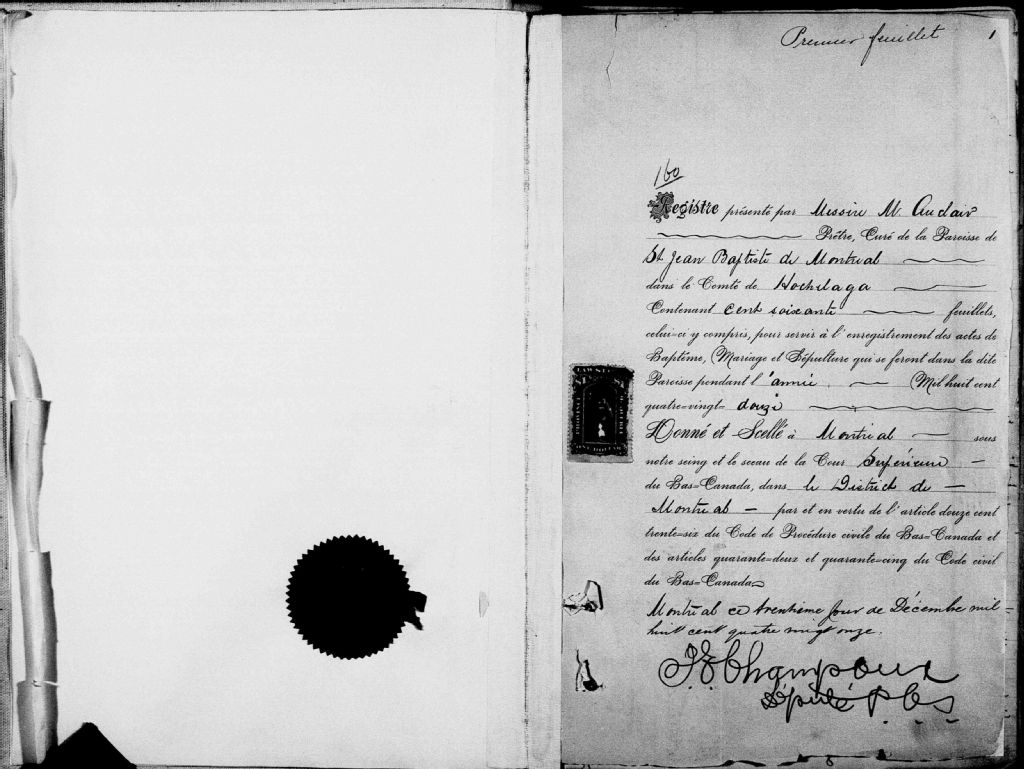 Premier feuillet 1
160
Registre présenté par Messire M. Auclair
Prêtre, Curé de la Paroisse de
St Jean Baptiste de Montreal
dans le Comté de Hochelaga
Contenant cent soixante feuillets,
celui=ci y compris, pour servir à l'enregistrement des actes de
Baptême, Mariage et Sépulture qui se feront dans la dite
Paroisse pendant l'année Mil huit cent
quatre=vingt= douze
Donné et Scellé à Montréal sous
notre seing et le sceau de la Cour Supérieure
du Bas=Canada, dans le District de
Montréal par et en vertu de l'article douze cent
trente=six du Code de Procédure civile du Bas=Canada et
des articles quarante=deux et quarante=cinq du Code civil
du Bas=Canada
Montréal ce trentième jour de Décembre mil
huit cent quatre vingt onze.
Champoux
Député P C S
ONE DOLLAR